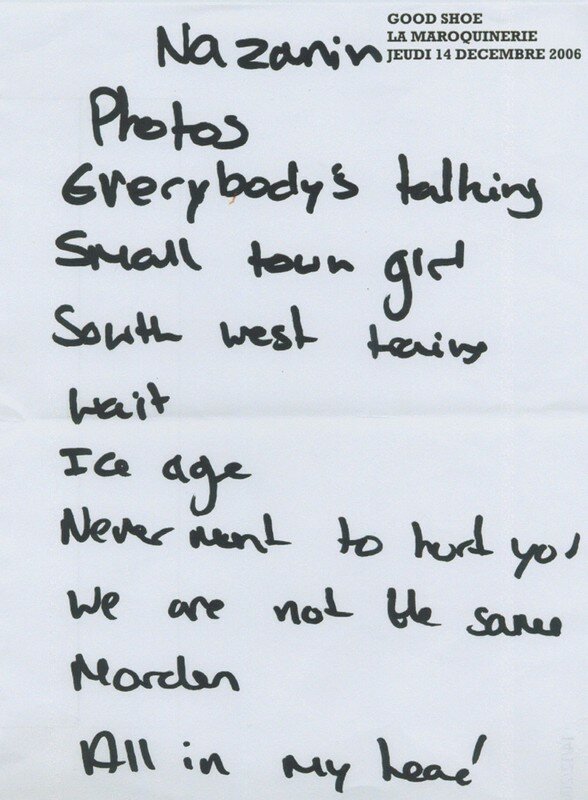 GOOD SHOE
LA MAROQUINERIE
JEUDI 14 DECEMBRE 2006
Nazanin
Photos
Everybody's talking
Small town girl
South west trains
Wait
Ice age
Never ment to hurt you
We are not the same
Morden
All in my head